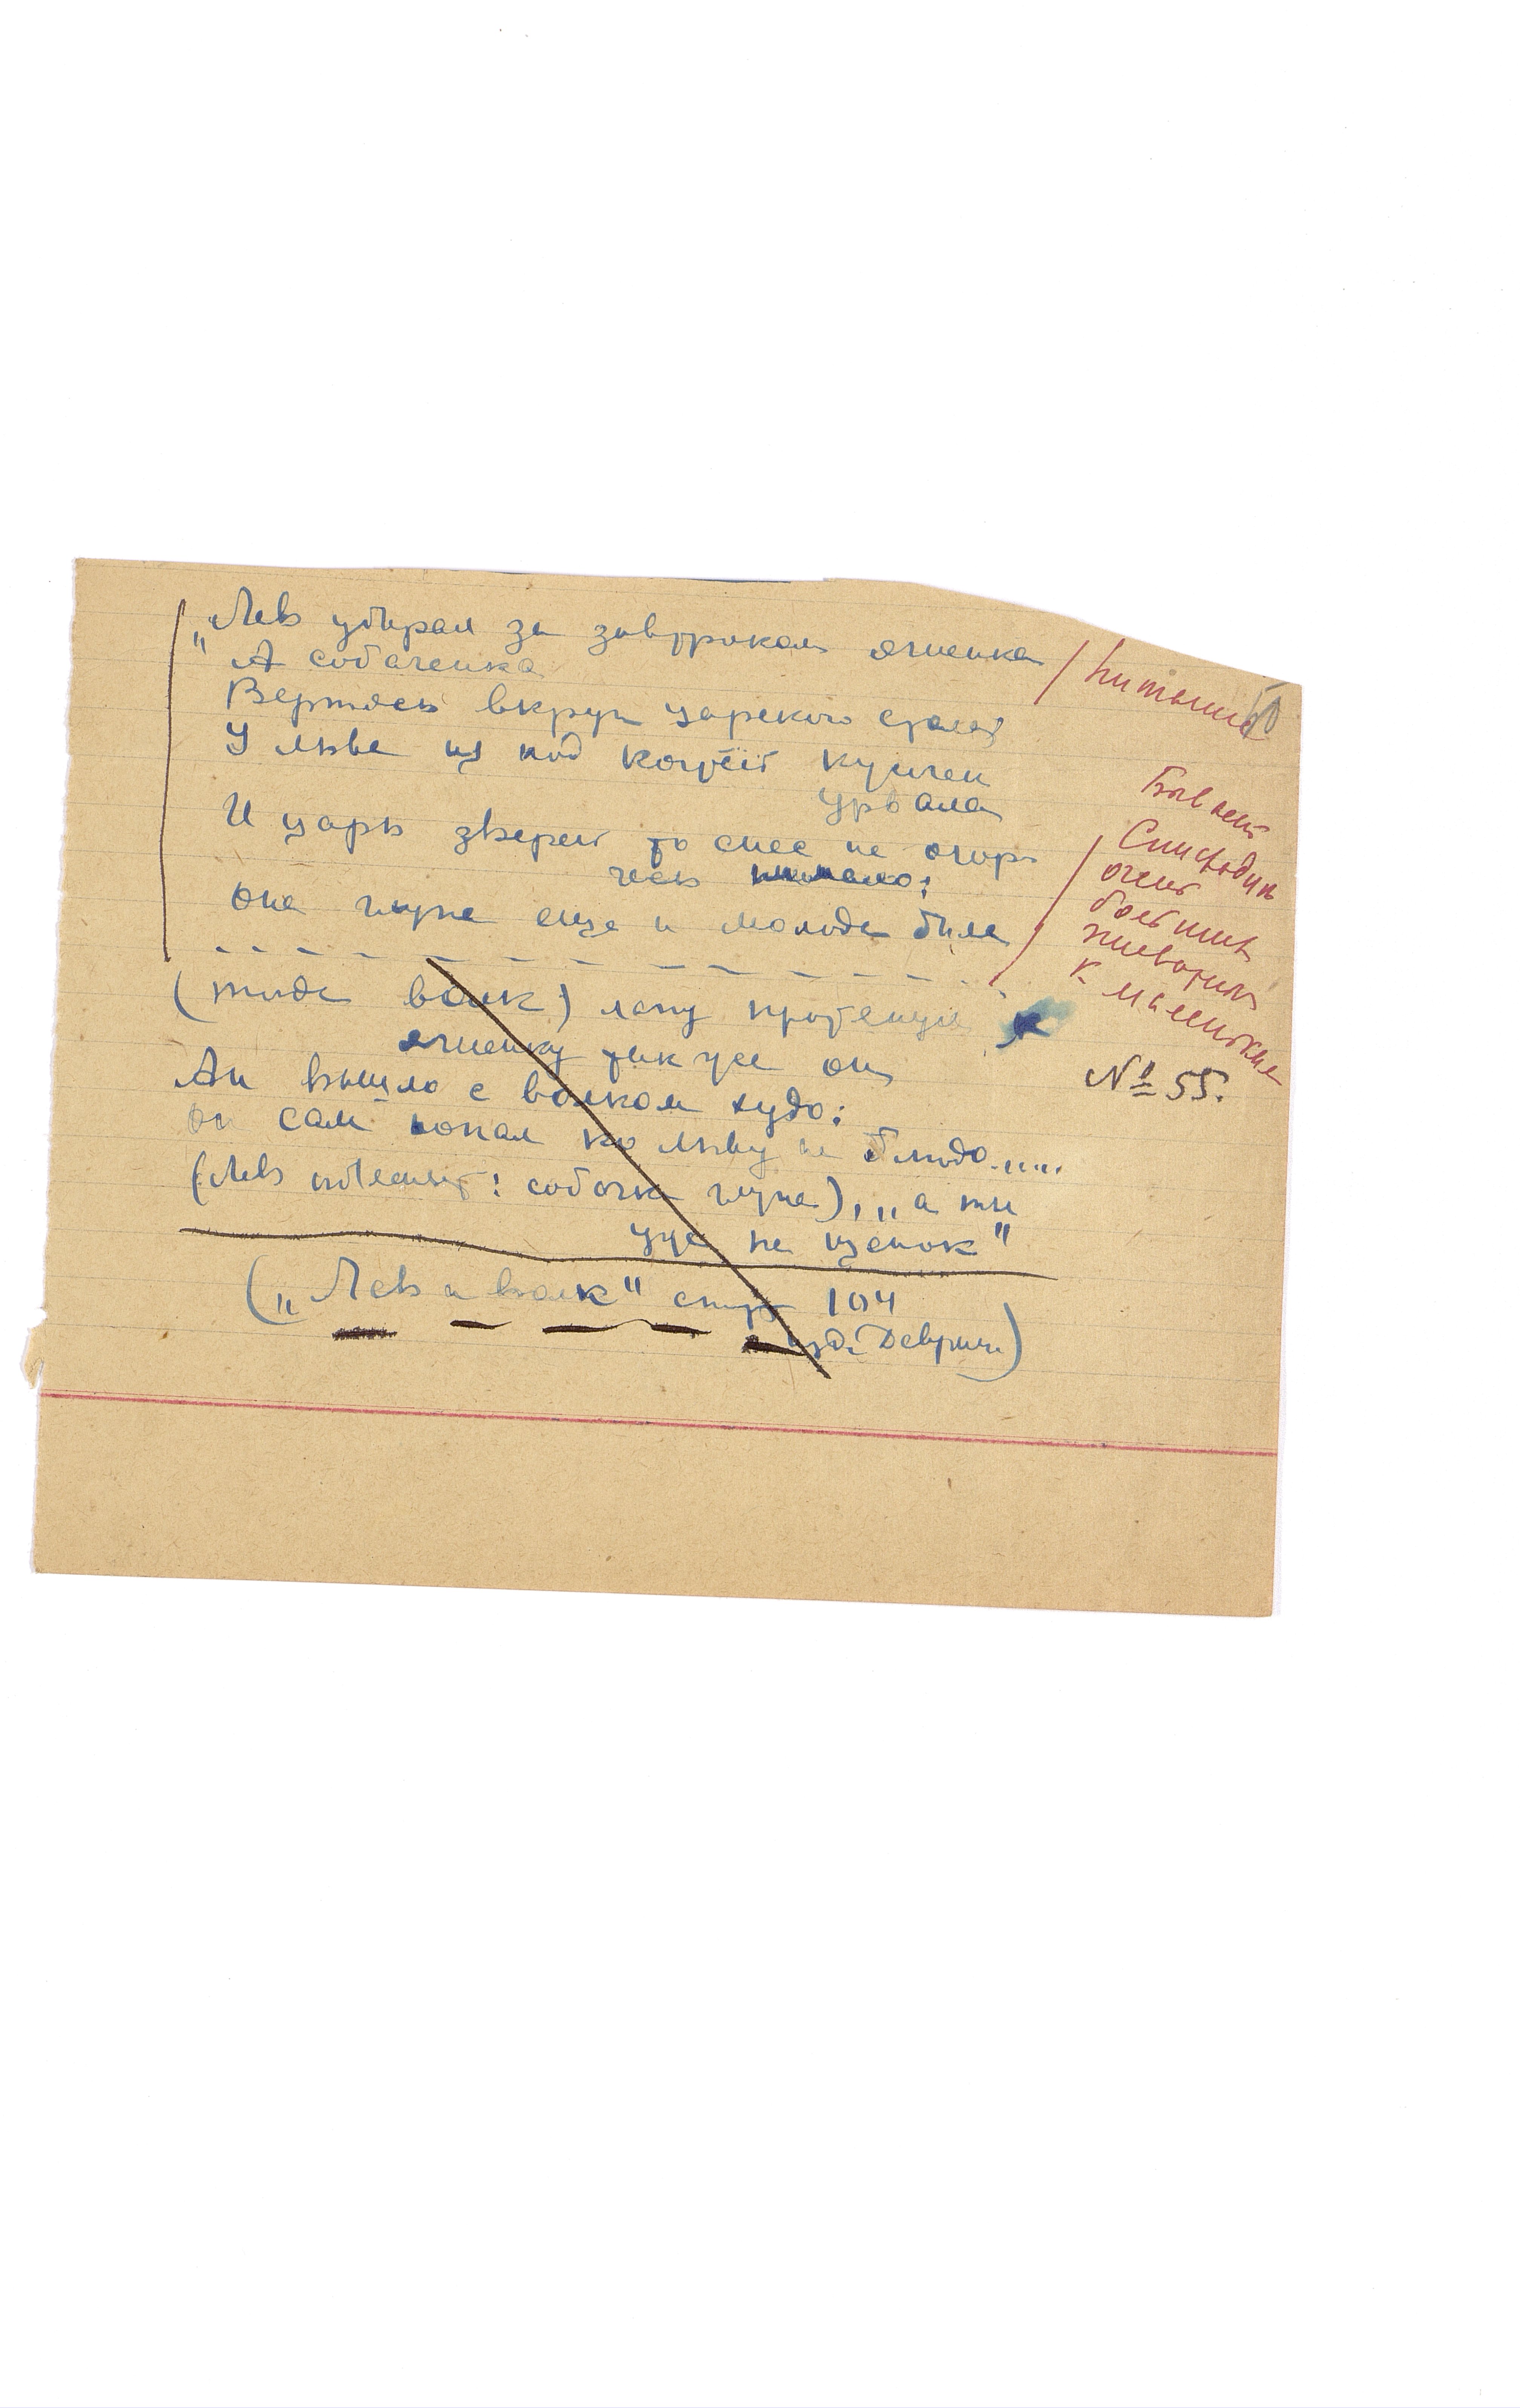 „Лев убирал за завтраком ягненка
А собаченка
Вертясь вкруг царского стола
У льва из под когтей кусочек
урвала
И царь зверей то снес не огор-
чась нимало:
Она глупа еще и молода была
(тогда волк) лапу протянул к
ягненку так же он
Ан вышло с волком худо:
Он сам попал ко льву на блюдо.....
(Лев объясняет: собачка глупа), „а ты
уже не щенок"
(„Лев и волк" стр 104
изд. Девриена)
Бывает
очень
больших
животных
к маленьким
№ 55.